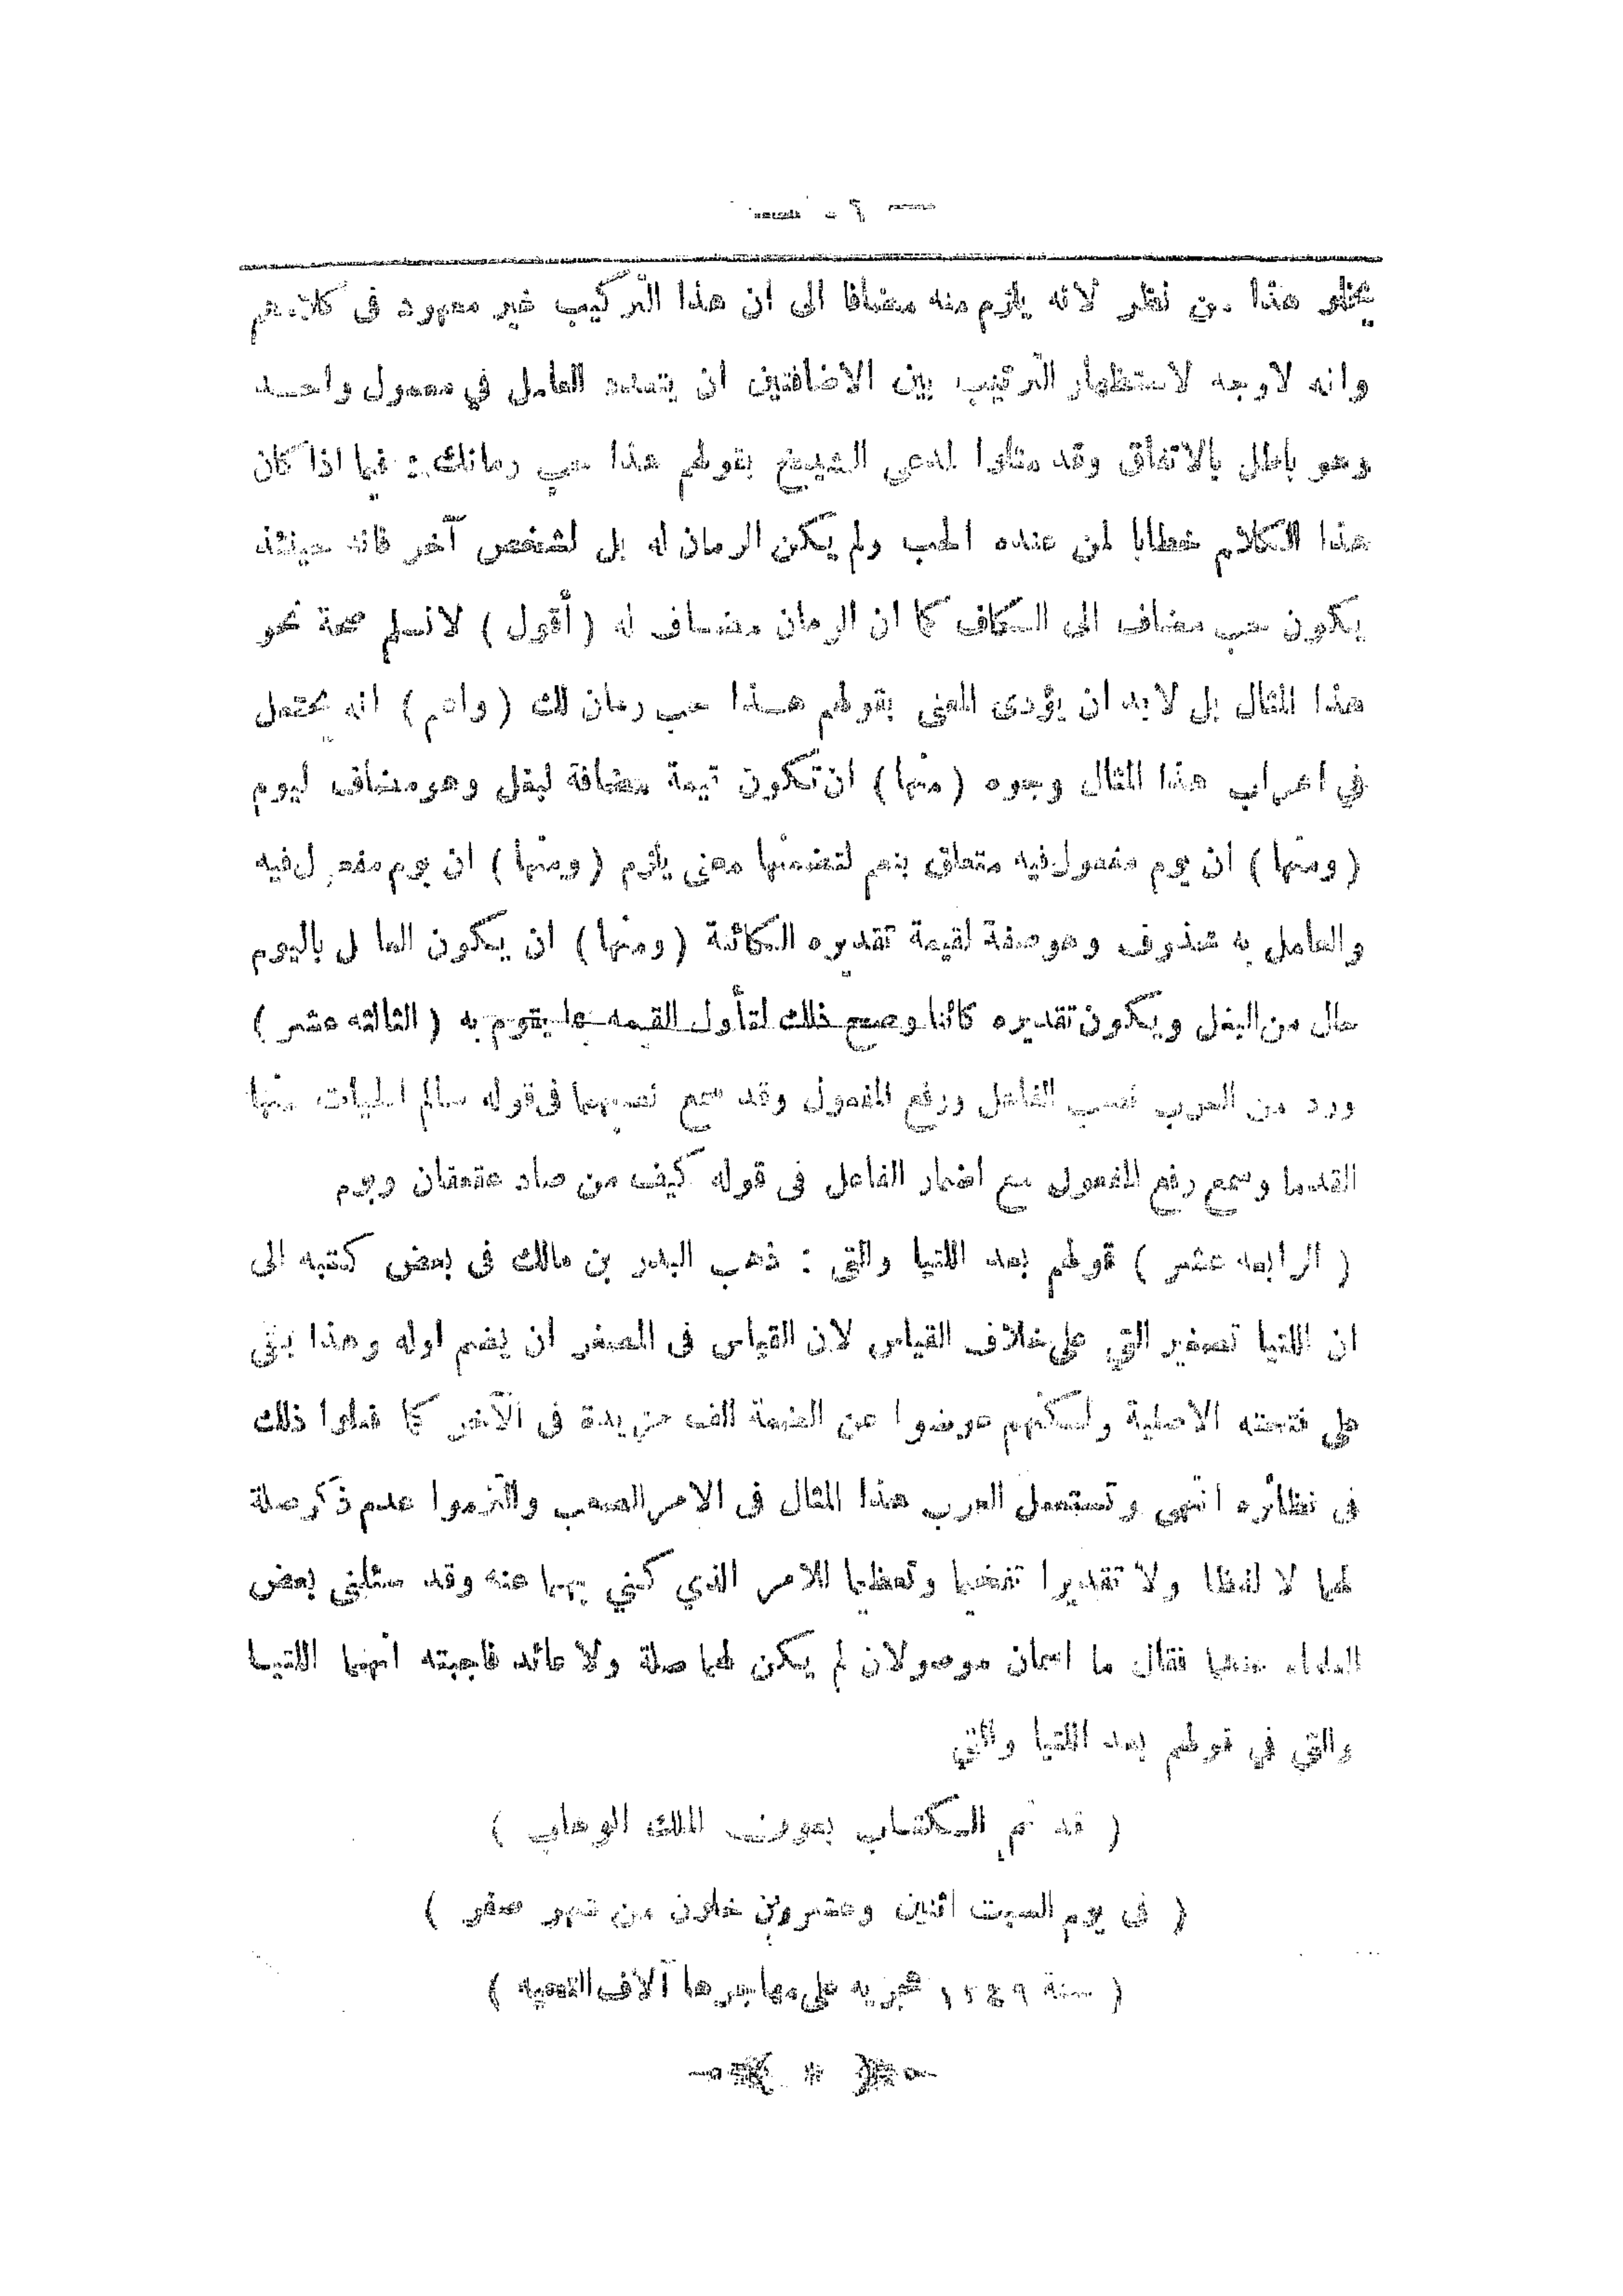 — ٦٠ —
يخلو هذا من نظر لانه يلزم منه مضافا الى ان هذا التركيب غير معهود فى كلامهم
وانه لاوجه لاستظهار الترتيب بين الاضافتين ان يتعدد العامل في معمول واحد
وهو باطل بالاتفاق وقد مثلوا لمدعى الشيخ بقولهم هذا حب رمانك : فيما اذا كان
هذا الكلام خطابا لمن عنده الحب ولم يكن الرمان له بل لشخص آخر فانه حينئذ
يكون حب مضاف الى الكاف كما ان الرمان مضاف له ( أقول ) لانسلم صحة نحو
هذا المثال بل لابد ان يؤدى المعنى بقولهم هذا حب رمان لك ( واعلم ) انه يحتمل
في اعراب هذا المثال وجوه ( منها ) ان تكون قيمة مضافة لبغل وهو مضاف ليوم
( ومنها ) ان يوم مفعول فيه متعلق بنعم لتضمنها معنى يلزم ( ومنها ) ان يوم مفعول فيه
والعامل به محذوف وهو صفة لقيمة تقديره الكائنة ( ومنها ) ان يكون العامل باليوم
حال من البغل ويكون تقديره كائنا وصح ذلك لتأول القيمه بما يقوم به ( الثالثه عشر )
ورد من العرب نصب الفاعل ورفع المفعول وقد سمع نصبهما فى قوله سالم الحيات منها
القدما وسمع رفع المفعول مع اضمار الفاعل فى قوله كيف من صاد عقعقان وبوم
( الرابعه عشر ) قولهم بعد اللتيا والتى : ذهب البدر بن مالك فى بعض كتبه الى
ان اللتيا تصغير التي على خلاف القياس لان القياس فى المصغر ان يضم اوله وهذا بقى
على فتحته الاصلية ولكنهم عوضوا عن الضمة الف مزيدة فى الآخر كما فعلوا ذلك
فى نظائره انتهى وتستعمل العرب هذا المثال فى الامر الصعب والتزموا عدم ذكر صلة
لهما لا لفظا ولا تقديرا تفخيما وتعظيما للامر الذي كني بهما عنه وقد سئلنى بعض
العلماء عنهما فقال ما اسمان موصولان لم يكن لهما صلة ولا عائد فاجبته انهما اللتيا
والتى في قولهم بعد اللتيا والتي
( قد تم الكتاب بعون الملك الوهاب )
( فى يوم السبت اثنين وعشرين خلون من شهر صفر )
( سنة ١٣٤٩ هجريه على مهاجرها آلاف التحيه )